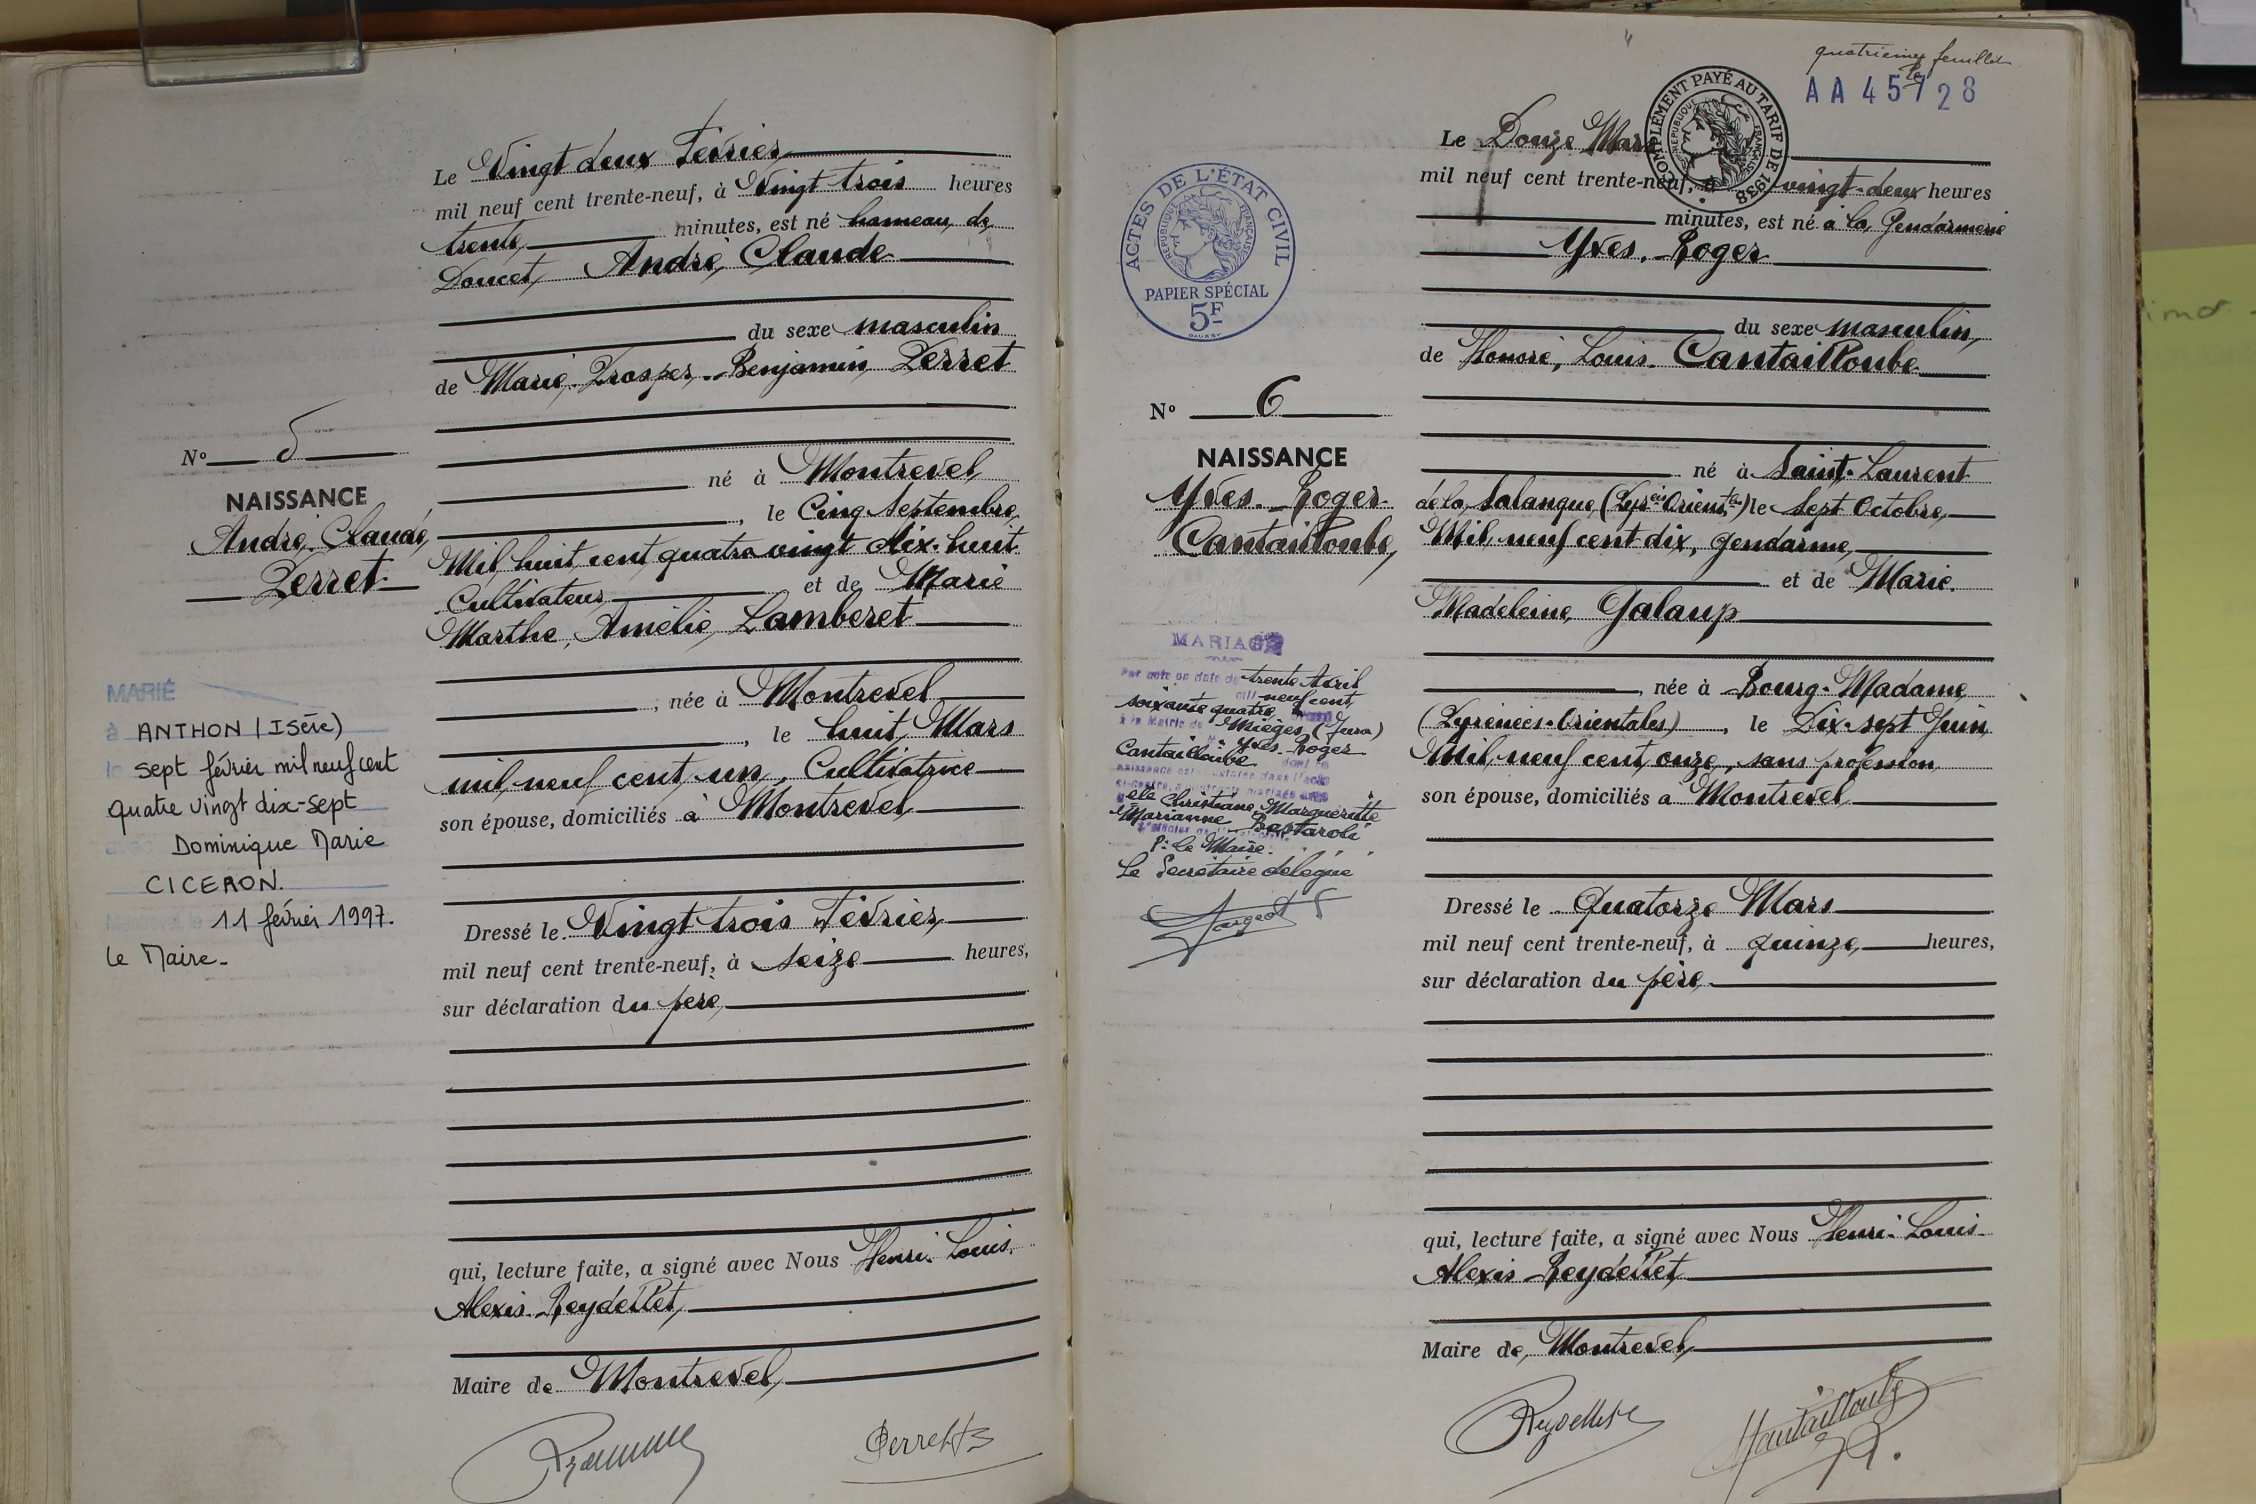 Le Vingt deux Février
mil neuf cent trente-neuf, à Vingt trois heures
trente minutes, est né hameau de
Doucet, André, Claude
du sexe masculin
de Marie, Prosper, Benjamin Perret
né à Montrevel
, le Cinq Septembre
Mil huit cent quatre vingt dix-huit
Cultivateur et de Marie
Marthe, Amélie, Lamberet
, née à Montrevel
, le huit Mars
mil neuf cent un, Cultivatrice
son épouse, domiciliés à Montrevel
Dressé le Vingt trois Février
mil neuf cent trente-neuf, à seize heures,
sur déclaration du père
qui, lecture faite, a signé avec Nous Henri-Louis
Alexis Reydellet,
Maire de Montrevel,
Perret
No 5
NAISSANCE
André, Claude,
Perret
MARIÉ
à ANTHON (Isère)
le sept février mil neuf cent
quatre vingt dix-sept
avec Dominique Marie
CICERON.
Montrevel le 11 février 1997.
Le Maire-
quatrième feuillet
AA 45728
COMPLÉMENT PAYÉ AU TARIF DE 1938
RÉPUBLIQUE FRANÇAISE
Le Douze Mars
mil neuf cent trente-neuf, à vingt-deux heures
minutes, est né à la Gendarmerie
Yves, Roger
du sexe masculin,
de Honoré, Louis Cantailloube
né à Saint-Laurent
de la Salanque, (Pyr.ées Orient.les) le Sept Octobre,
Mil neuf cent dix, gendarme,
et de Marie
Madeleine Galaup
, née à Bourg-Madame
(Pyrénées-Orientales), le Dix-sept Juin,
Mil neuf cent onze, sans profession
son épouse, domiciliés à Montrevel
Dressé le Quatorze Mars
mil neuf cent trente-neuf, à quinze, heures,
sur déclaration du père
qui, lecture faite, a signé avec Nous Henri-Louis
Alexis Reydellet,
Maire de Montrevel,
Reydellet
Cantailloube
ACTES DE L'ÉTAT CIVIL
RÉPUBLIQUE FRANÇAISE
PAPIER SPÉCIAL
5F
No 6
NAISSANCE
Yves-Roger
Cantailloube,
MARIAGE
Par acte en date du trente Avril
mil neuf cent
soixante quatre
à la Mairie de Mièges (Jura)
Yves Roger
Cantailloube dont la
naissance est constatée dans l'acte
Christiane Marguerite
Marianne
P: le Maire.
Le Secrétaire délégué